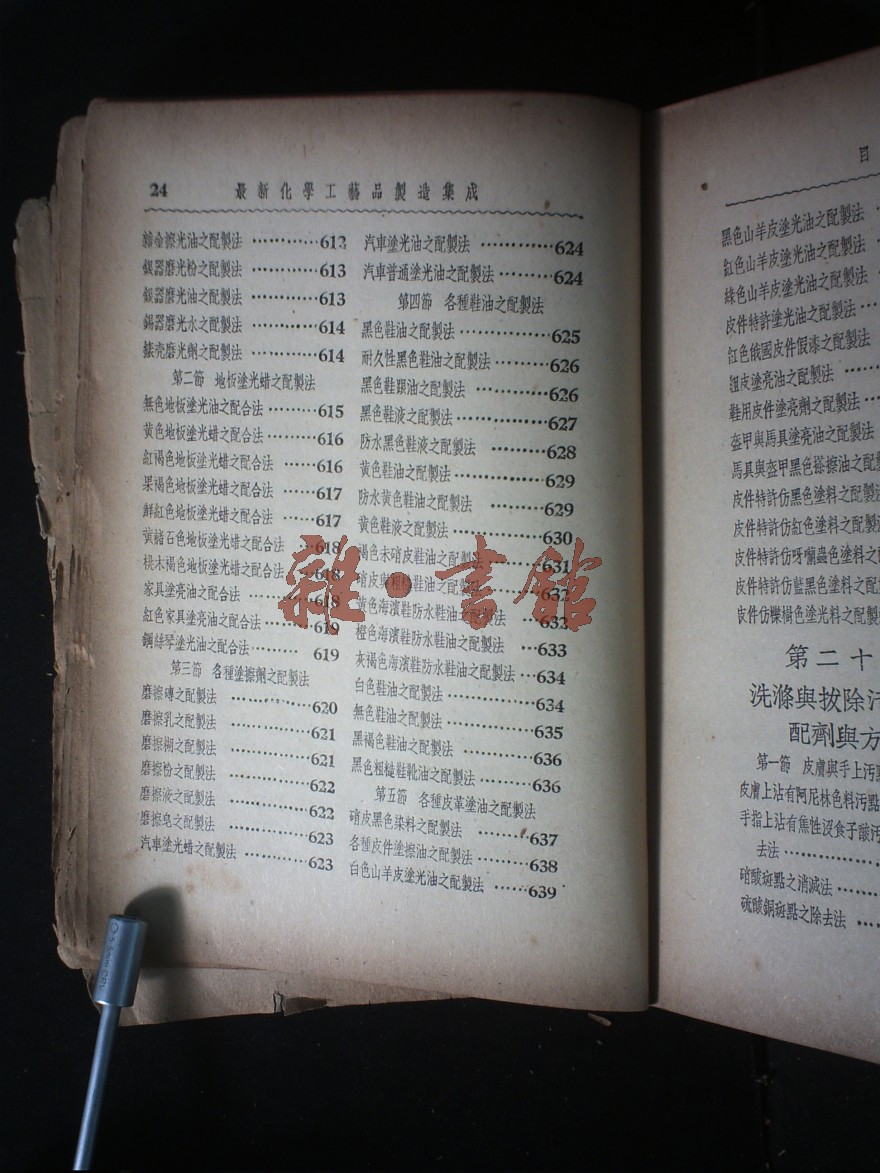 24 最新化學工藝品製造集成
擦光油之配製法 …………612
銀器磨光粉之配製法 ………613
銀器磨光油之配製法 ………613
錫器磨光水之配製法 ………614
錶壳磨光劑之配製法 ………614
第二節 地板塗光蜡之配製法
無色地板塗光油之配合法 ………615
黄色地板塗光蜡之配合法 ………616
紅褐色地板塗光蜡之配合法 ……616
果褐色地板塗光蜡之配合法 ……617
鮮紅色地板塗光蜡之配合法 ……617
黄赭石色地板塗光蜡之配合法 …618
桃木褐色地板塗光蜡之配合法 …618
家具塗亮油之配合法 …………618
紅色家具塗亮油之配合法 ………619
鋼絲琴塗光油之配合法 …………619
第三節 各種塗擦劑之配製法
磨擦磚之配製法 ……………620
磨擦乳之配製法 ……………621
磨擦糊之配製法 ……………621
磨擦粉之配製法 ……………622
磨擦液之配製法 ……………622
磨擦皂之配製法 ……………623
汽車塗光蜡之配製法 …………623
汽車塗光油之配製法 …………624
汽車普通塗光油之配製法 ………624
第四節 各種鞋油之配製法
黑色鞋油之配製法 ……………625
耐久性黑色鞋油之配製法 ………626
黑色鞋跟油之配製法 …………626
黑色鞋液之配製法 ……………627
防水黑色鞋液之配製法 …………628
黄色鞋油之配製法 ……………629
防水黄色鞋油之配製法 …………629
黄色鞋液之配製法 ……………630
褐色未硝皮鞋油之配製法 ………631
硝皮與粗糙鞋油之配製法 ………632
黄色海濱鞋防水鞋油之配製法 …632
橙色海濱鞋防水鞋油之配製法 …633
灰褐色海濱鞋防水鞋油之配製法 …634
白色鞋油之配製法 ……………634
無色鞋油之配製法 ……………635
黑褐色鞋油之配製法 …………636
黑色粗糙鞋靴油之配製法 ………636
第五節 各種皮革塗油之配製法
硝皮黑色染料之配製法 …………637
各種皮件塗擦油之配製法 ………638
白色山羊皮塗光油之配製法 ……639
雜·書館
目
黑色山羊皮塗光油之配製法
紅色山羊皮塗光油之配製法
綠色山羊皮塗光油之配製法
皮件特許塗光油之配製法
紅色俄國皮件假漆之配製法
鈕皮塗亮油之配製法
鞋用皮件塗亮劑之配製法
盔甲與馬具塗亮油之配製
馬具與盔甲黑色擦油之配
皮件特許仿黑色塗料之配製
皮件特許仿紅色塗料之配製
皮件特許仿呀囒蟲色塗料之配
皮件特許仿藍黑色塗料之配製
皮件仿櫟樹色塗光料之配製
第二十
洗滌與拔除汚
配劑與方
第一節 皮膚與手上汚點
皮膚上沾有阿尼林色料汚點
手指上沾有焦性沒食子酸汚
去法 ……………
硝酸斑點之消減法
硫酸銅斑點之除去法